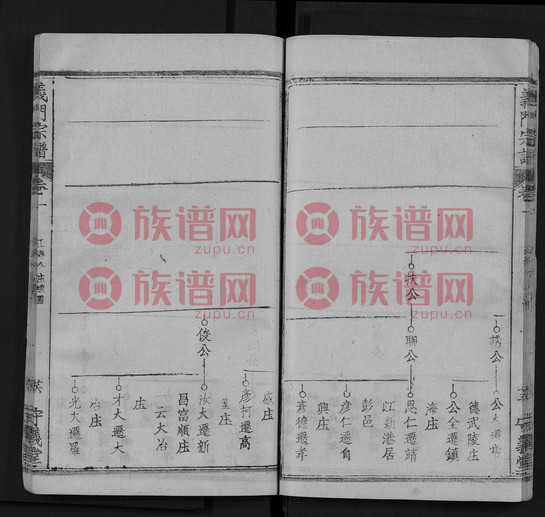 義門宗譜
卷一
誘公
公大㳺常
德武陵庄
公全遷鎮
海庄
扶公
聯公
思仁遷靖
江新港居
彭邑
彦仁遷自
興庄
彦德遷孝
感庄
彦柯遷高
堇庄
俊公
汝大遷新
昌富順庄
云大冶
庄
才大遷大
冶庄
光大遷羅
義門宗譜
卷一
族谱网
zupu.cn
族谱网
zupu.cn
族谱网
zupu.cn
族谱网
zupu.cn